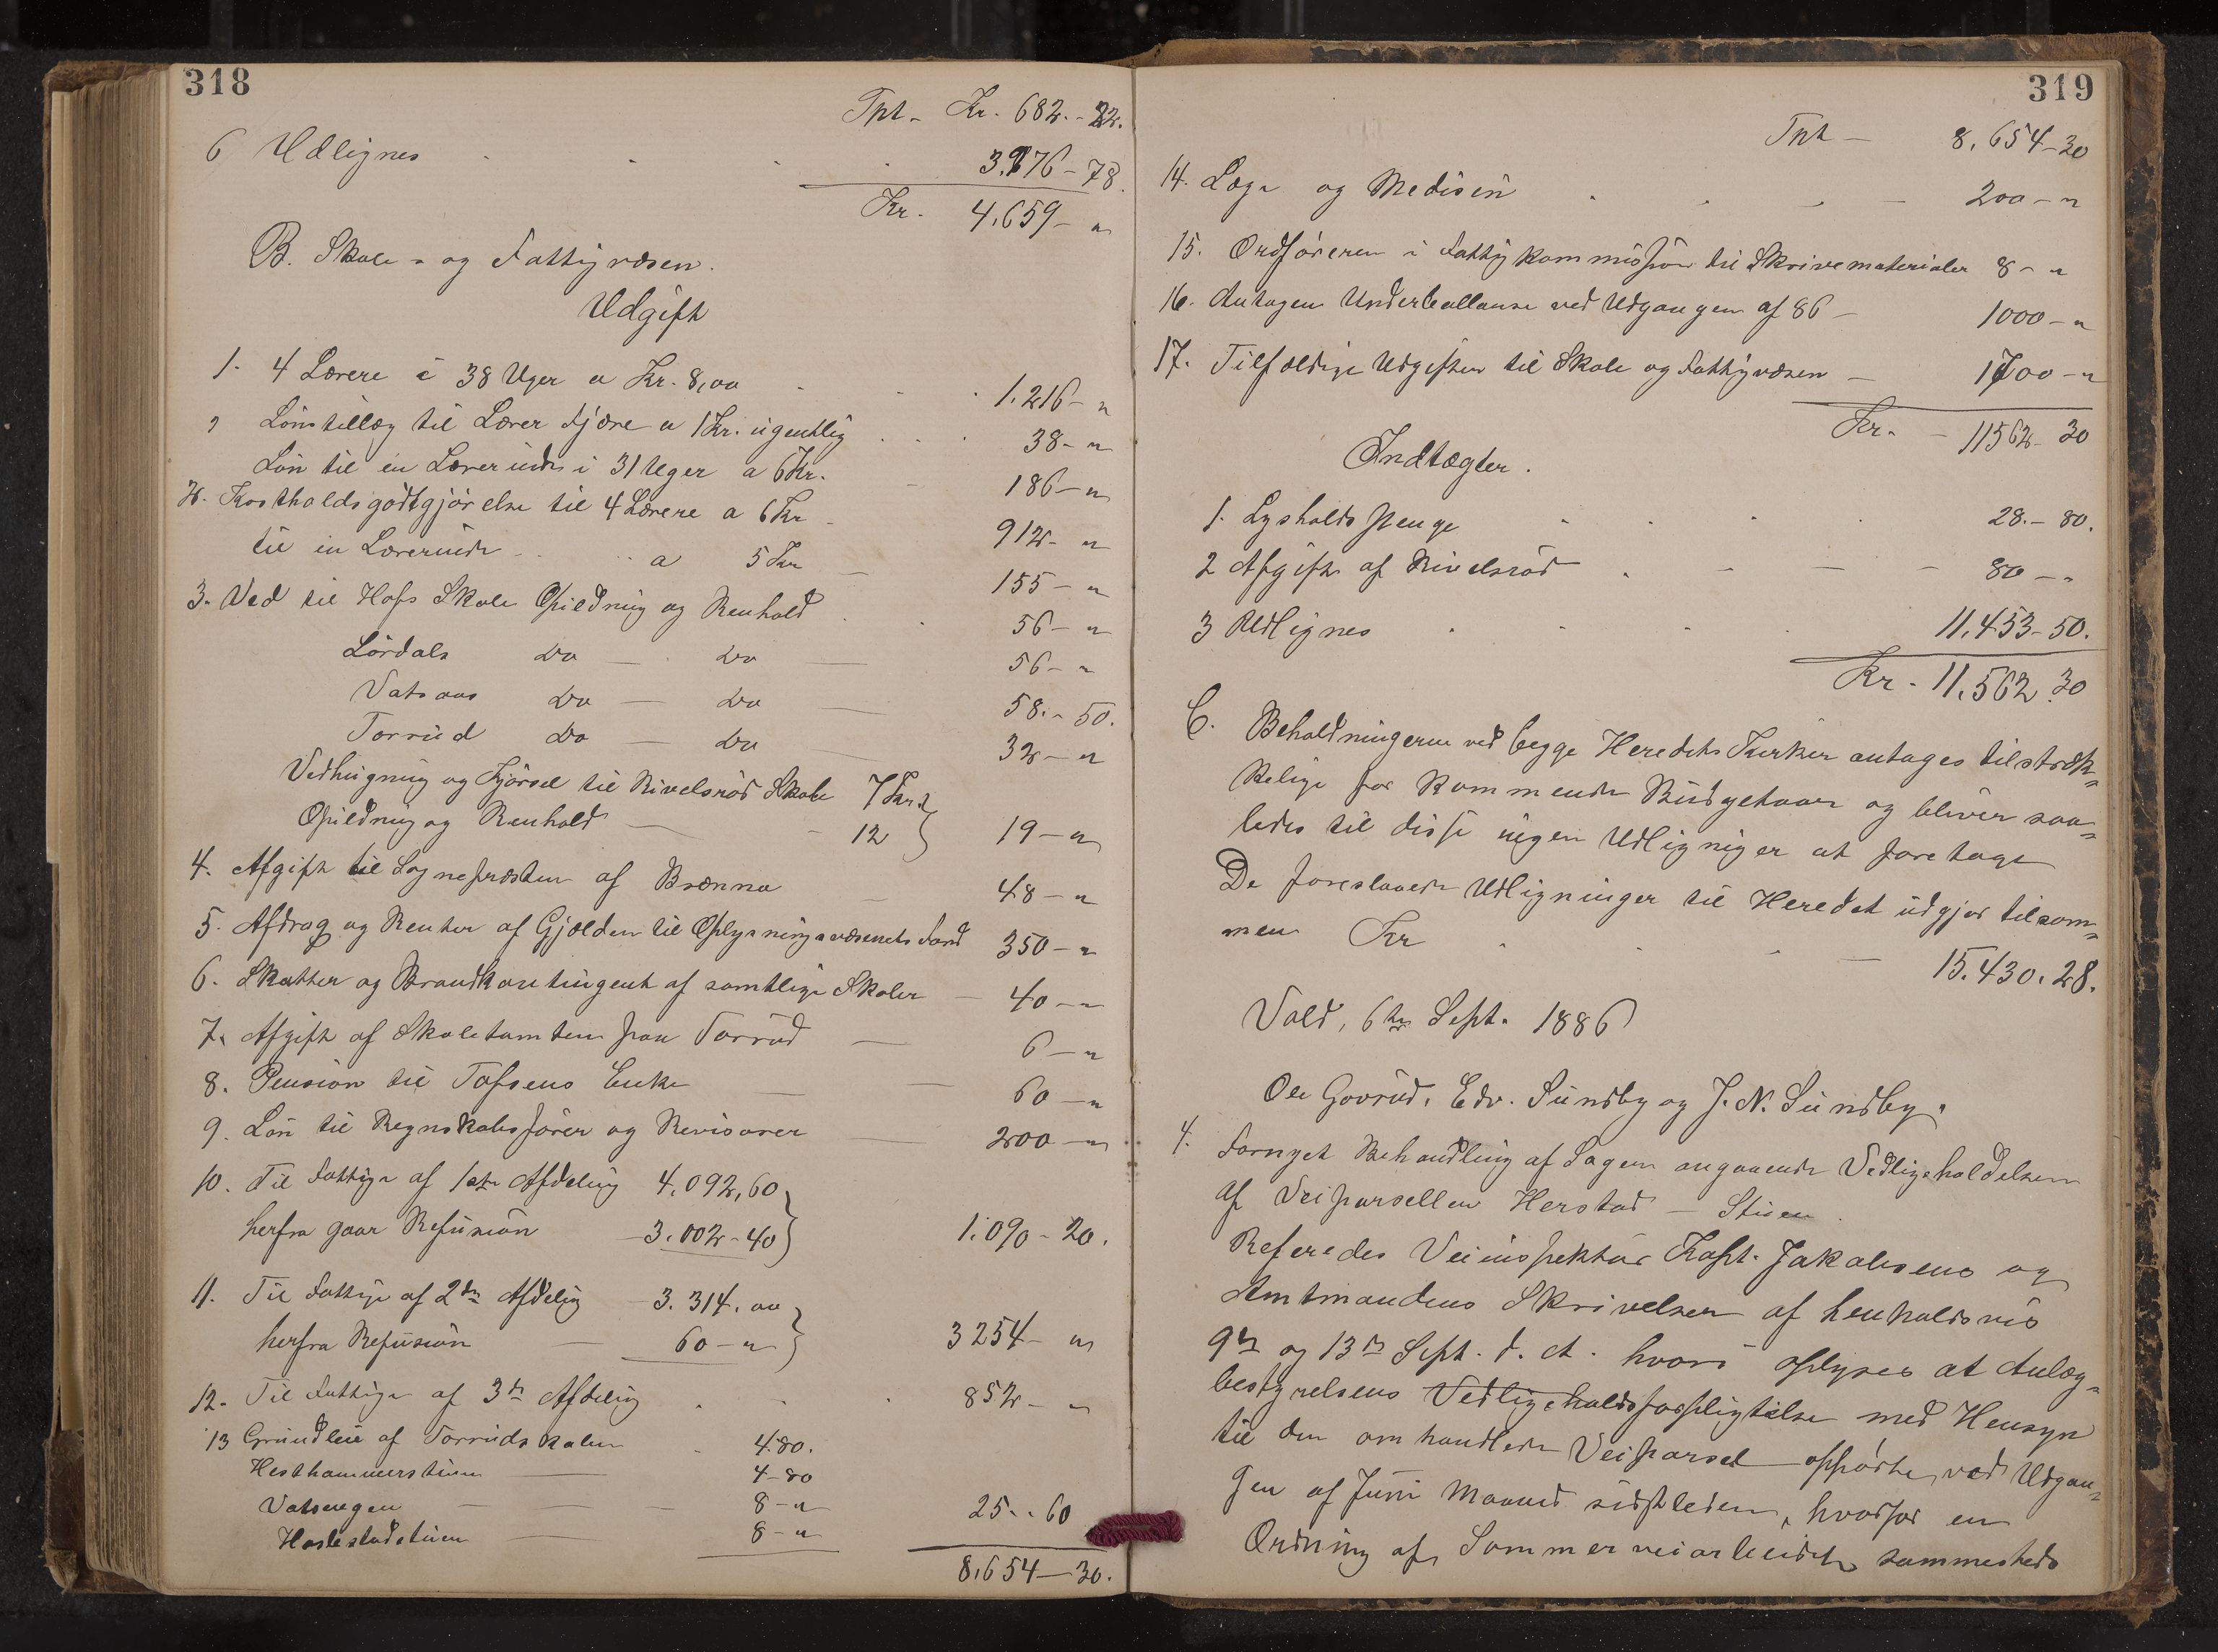 318
Tpt. Kr. 682.-22.
6 Udlignes . . . . 3.976-78.
Kr. 4.659-"
B. Skole- og Fattigvæsen.
Udgift
1. 4 Lærere i 38 Uger a Kr. 8,00 . . . 1.216-"
" Lønstillæg til Lærer Fjære a 1 Kr. ugentlig . . . 38-"
Løn til én Lærerinde i 31 Uger a 6 Kr. 186-"
2. Kostholdsgodtgjørelse til 4 Lærere a 6 Kr 912-"
til en Lærerinde . . a 5 Kr 155-"
3. Ved til Hofs Skole Opildning og Renhold . . 56-"
Lørdals Do — Do — 56-"
Vatsaas Do — Do — 58.-50.
Torrud Do — Do — 32-"
Vedhugning og Kjørsel til Rivelsrød Skole 7 Kr. }
Opildning og Renhold — 12 } 19-"
4. Afgift til Sognepræsten af Brænna 48-"
5. Afdrag og Renter af Gjælden til Oplysningsvæsenets Fond 350-"
6. Skatter og Brandkontingent af samtlige Skoler — 40-"
7. Afgift af Skoletomten paa Torrud — 6-"
8. Pension til Tofsens Enke — 60-"
9. Løn til Regnskabsfører og Revisorer — 200-"
10. Til Fattige af 1ste Afdeling 4.092,60 }
herfra gaar Refusion 3.002-40 } 1.090-20.
11. Til Fattige af 2den Afdelig 3.314.00 }
herfra Refusion — 60-" } 3254-"
12. Til Fattige af 3de Afdelig . . . 852-"
13 Grundleie af Torrudskolen . 4.80.
Hesthammerstuen — 4-80
Vatsengen — 8-"
Haslestadstuen — 8-" 25.-60
8.654-30.
319
Tpt — 8.654-30
14. Læge og Medisin . . . 200-"
15. Ordføreren i Fattigkommission til Skrivematerialer 8-"
16. Antagen Underballanse ved Udgangen af 86 — 1000-"
17. Tilfældige Udgifter til Skole og Fattigvæsen — 1700-"
Kr. — 11562-30
Indtægter.
1. Lysholds penge . . . . 28.-80.
2 Afgift af Rivelsrød . — — — 80-"
3 Udlignes . . . . 11.453-50.
Kr. 11.562.30
C. Beholdningerne ved begge Heredets Kirker antages tilstræk-
kelige for kommende Budgetaar og bliver saa-
ledes til disse ingen Udligniger at foretage
De foreslaaede Udligninger til Heredet udgjør tilsam-
men Kr . . — 15.430.28.
Vold, 6te Sept. 1886
Ole Govrud, Edv. Sundby og J. N. Sundby.
4. Fornyet Behandling af Sagen angaaende Vedligeholdelsen
af Veiparsellen Herstad — Stuen.
Referedes Veiinspektør Kapt. Jakobsens og
Amtmandens Skrivelser af henholdsvis
9de og 13de Sept. d. A. hvori oplyses at Anlæg-
bestyrelsens Vedligeholdsforpligtelse med Hensyn
til den omhandlede Veiparsel opphørte ved Udgan-
gen af Juni Maaned sidstleden, hvorfor en
Ordning af Sommerveiarbeidet sammesteds